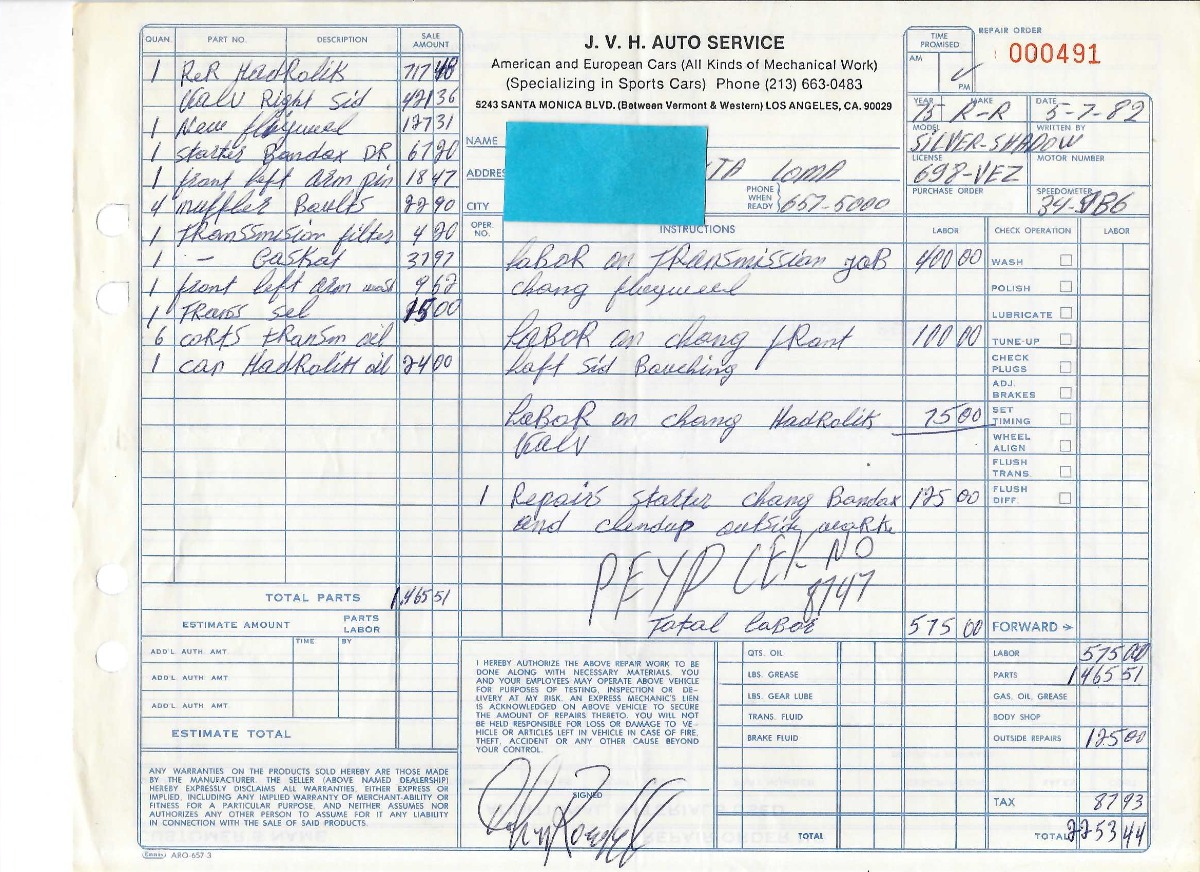 J. V. H. AUTO SERVICE
American and European Cars (All Kinds of Mechanical Work)
(Specializing in Sports Cars) Phone (213) 663-0483
5243 SANTA MONICA BLVD. (Between Vermont & Western) LOS ANGELES, CA. 90029
TIME PROMISED
AM
PM
REPAIR ORDER
000491
YEAR 75 MAKE R-R DATE 5-7-82
MODEL SILVER-SHADOW WRITTEN BY
LICENSE 698-VEZ MOTOR NUMBER
PURCHASE ORDER SPEEDOMETER
NAME
ADDRES LOMA
CITY PHONE WHEN READY 657-5000
QUAN. PART NO. DESCRIPTION SALE AMOUNT
1 ReR HadRolik 717
Valv Right Sid 42136
1 New flayweel 12731
1 starter Bandax DR 6720
1 front left arm pin 1847
4 muffler Boults 2290
1 TRanssmision filter 420
1 - Gaskat 3797
1 front left arm 962
1 TRans sel 1500
6 corts transm oil
1 can HadRolik oil 2400
TOTAL PARTS 146551
ESTIMATE AMOUNT PARTS LABOR
TIME BY
ADD'L. AUTH. AMT.
ADD'L. AUTH. AMT.
ADD'L. AUTH. AMT.
ESTIMATE TOTAL
ANY WARRANTIES ON THE PRODUCTS SOLD HEREBY ARE THOSE MADE
BY THE MANUFACTURER. THE SELLER (ABOVE NAMED DEALERSHIP)
HEREBY EXPRESSLY DISCLAIMS ALL WARRANTIES, EITHER EXPRESS OR
IMPLIED, INCLUDING ANY IMPLIED WARRANTY OF MERCHANT-ABILITY OR
FITNESS FOR A PARTICULAR PURPOSE, AND NEITHER ASSUMES NOR
AUTHORIZES ANY OTHER PERSON TO ASSUME FOR IT ANY LIABILITY
IN CONNECTION WITH THE SALE OF SAID PRODUCTS.
ARO-657-3
OPER. NO. INSTRUCTIONS LABOR
LaBoR on TRansmission JoB 400 00
chang flayweel
LaBoR on chang fRant 100 00
Laft Sid Bouching
LaBoR on chang HadRolik 75 00
Valv
1 Repairs starter chang Bandax 125 00
and clendup outside worke
PEYD CEK NO
8747
Total laboR 575 00 FORWARD
CHECK OPERATION LABOR
WASH
POLISH
LUBRICATE
TUNE-UP
CHECK PLUGS
ADJ. BRAKES
SET TIMING
WHEEL ALIGN
FLUSH TRANS.
FLUSH DIFF.
I HEREBY AUTHORIZE THE ABOVE REPAIR WORK TO BE
DONE ALONG WITH NECESSARY MATERIALS. YOU
AND YOUR EMPLOYEES MAY OPERATE ABOVE VEHICLE
FOR PURPOSES OF TESTING, INSPECTION OR DE-
LIVERY AT MY RISK. AN EXPRESS MECHANIC'S LIEN
IS ACKNOWLEDGED ON ABOVE VEHICLE TO SECURE
THE AMOUNT OF REPAIRS THERETO. YOU WILL NOT
BE HELD RESPONSIBLE FOR LOSS OR DAMAGE TO VE-
HICLE OR ARTICLES LEFT IN VEHICLE IN CASE OF FIRE,
THEFT, ACCIDENT OR ANY OTHER CAUSE BEYOND
YOUR CONTROL.
SIGNED
QTS. OIL
LBS. GREASE
LBS. GEAR LUBE
TRANS. FLUID
BRAKE FLUID
TOTAL
LABOR 575 00
PARTS 1465 51
GAS, OIL, GREASE
BODY SHOP
OUTSIDE REPAIRS 125 00
TAX 87 93
TOTAL 2253 44